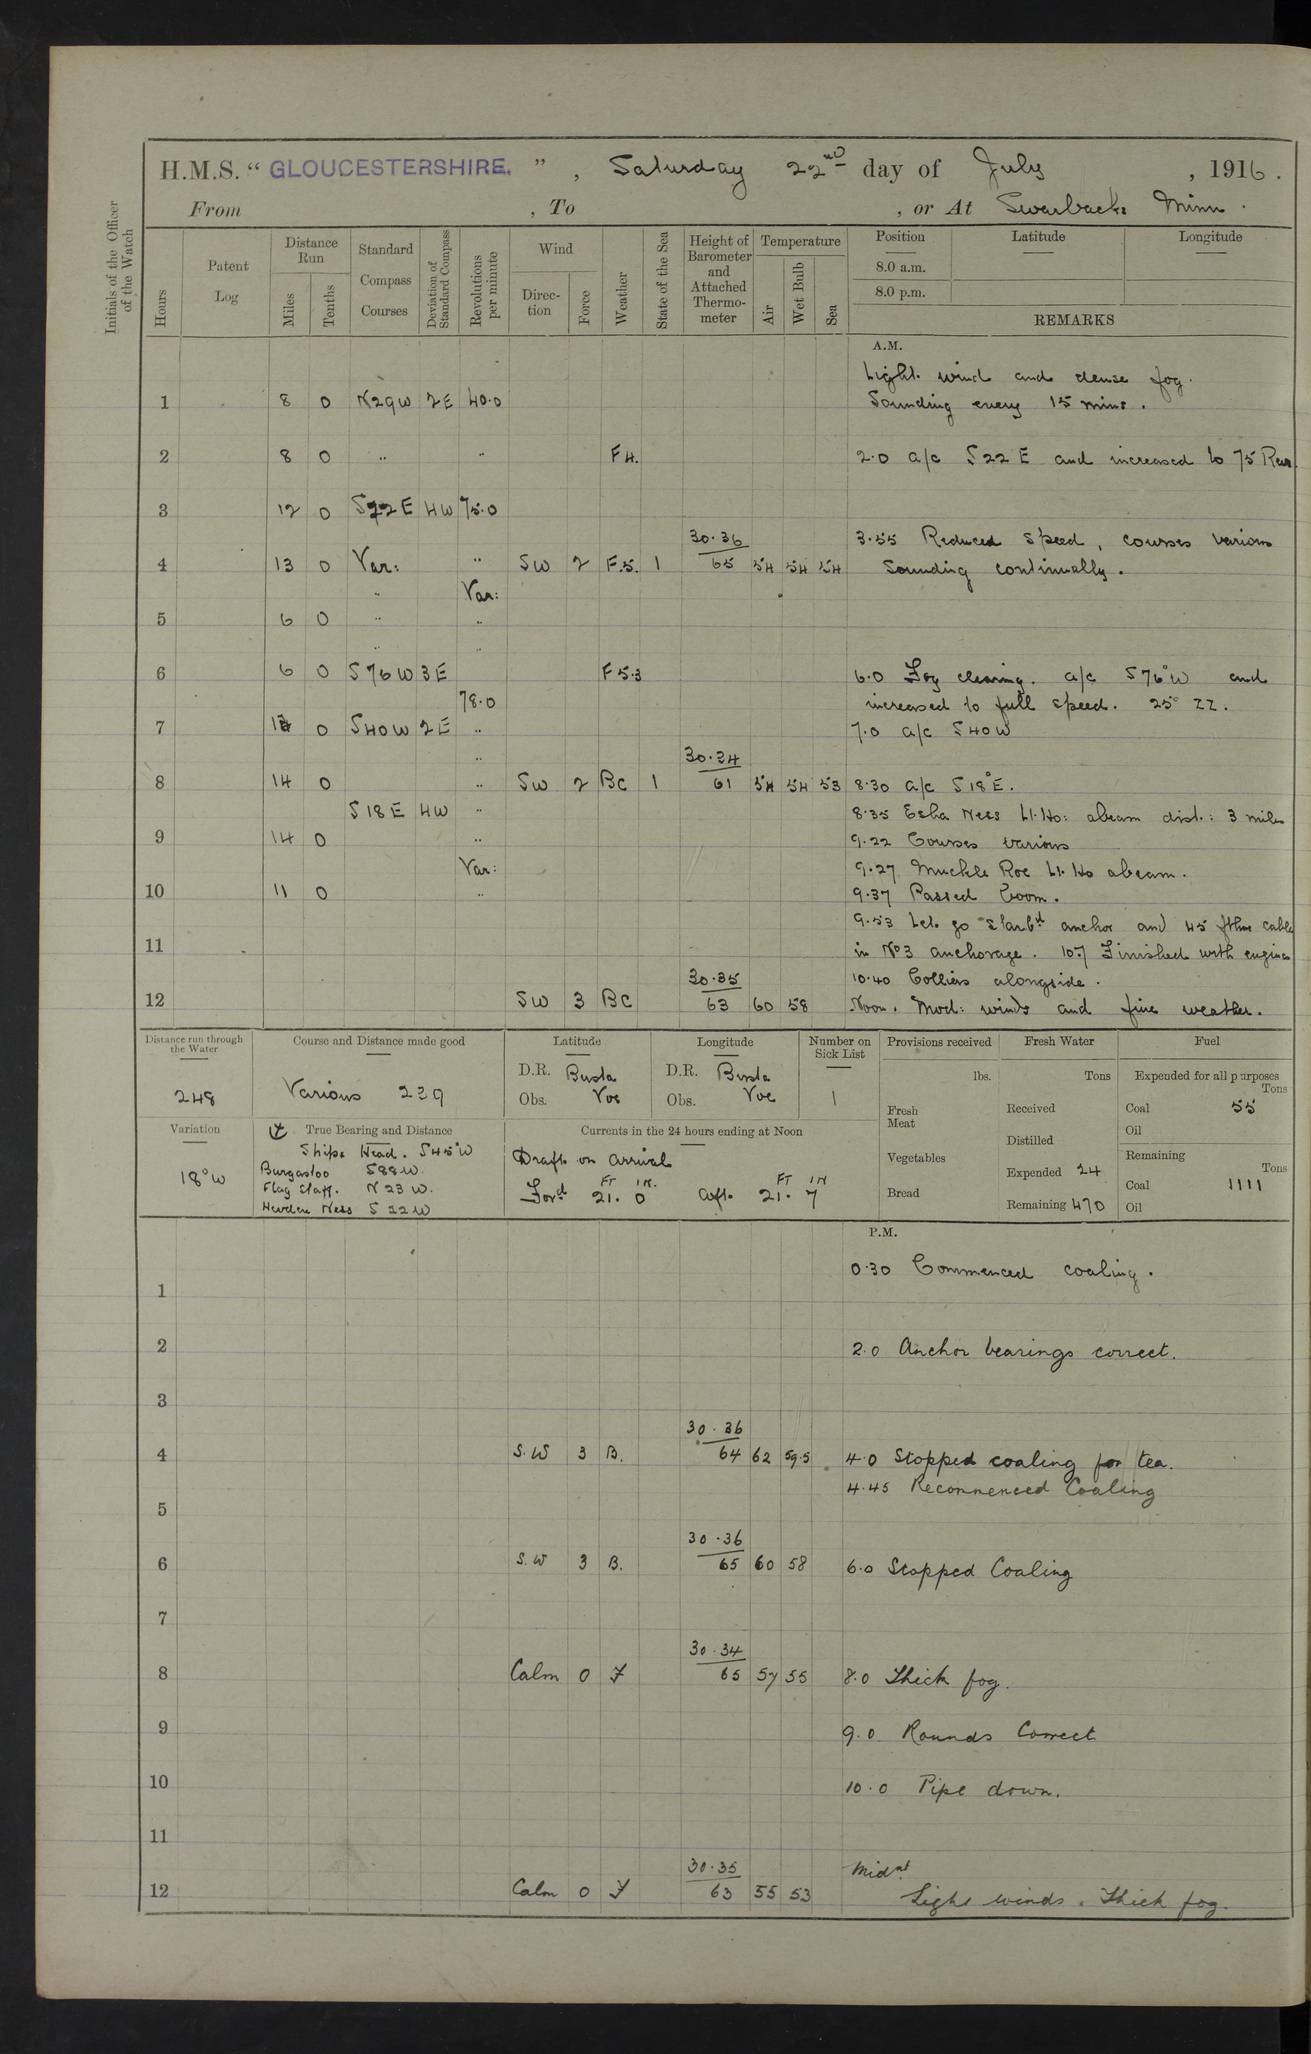 H.M.S. "GLOUCESTERSHIRE.", Saturday 22nd day of July, 1916.
From , To , or At Swarbacks Minn.
Initials of the Officer of the Watch
Hours
Patent Log
Distance Run
Miles
Tenths
Standard Compass Courses
Deviation of Standard Compass
Revolutions per minute
Wind
Direction
Force
Weather
State of the Sea
Height of Barometer and Attached Thermometer
Temperature
Air
Wet Bulb
Sea
Position Latitude Longitude
8.0 a.m.
8.0 p.m.
REMARKS
A.M.
Light wind and dense fog.
1 8 0 N29W 2E 40.0 Sounding every 15 mins.
2 8 0 " " F4. 2.0 a/c S22E and increased to 75 Revs
3 12 0 S22E 4W 75.0
30.36 3.55 Reduced speed, courses various
4 13 0 Var: " SW 2 F.5. 1 65 54 54 54 Sounding continually.
" Var:
5 6 0 " "
" "
6 6 0 S76W 3E F5.3 6.0 Fog clearing. a/c S76°W and
78.0 increased to full speed. 25° ZZ.
7 0 S40W 2E " 7.0 a/c S40W
" 30.34
8 14 0 " SW 2 BC 1 61 54 54 53 8.30 a/c S18°E.
S18E 4W " 8.35 Esha Ness Lt. Ho: abeam dist: 3 miles
9 14 0 " 9.22 Courses various
Var: 9.27 Muckle Roe Lt. Ho abeam.
10 11 0 " 9.37 Passed boom.
9.53 Let go Starbd anchor and 45 fthms cable
11 in No3 anchorage. 10.7 Finished with engines
30.35 10.40 Colliers alongside.
12 SW 3 BC 63 60 58 Noon. Mod: winds and fine weather.
Distance run through the Water
248
Course and Distance made good
Various 239
Latitude
D.R. Busta
Obs. Voe
Longitude
D.R. Busta
Obs. Voe
Number on Sick List
1
Provisions received
lbs.
Fresh Meat
Vegetables
Bread
Fresh Water
Tons
Received
Distilled
Expended 24
Remaining 470
Fuel
Expended for all purposes
Tons
Coal 55
Oil
Remaining
Tons
Coal 1111
Oil
Variation
18°W
True Bearing and Distance
Ships Head. S45°W
Burgastoo S88W.
Flag Staff. N23W.
Ness S22W
Currents in the 24 hours ending at Noon
Draft on arrival
FT IN. FT IN
Ford 21. 0 aft. 21. 7
P.M.
0.30 Commenced coaling.
1
2 2.0 Anchor bearings correct.
3
30.36
4 S.W 3 B. 64 62 59.5 4.0 Stopped coaling for tea.
4.45 Recommenced Coaling
5
30.36
6 S.W 3 B. 65 60 58 6.0 Stopped Coaling
7
30.34
8 Calm 0 F 65 57 55 8.0 Thick fog.
9 9.0 Rounds Correct
10 10.0 Pipe down.
11
30.35 Midnt
12 Calm 0 F 63 55 53 Light winds. Thick fog.